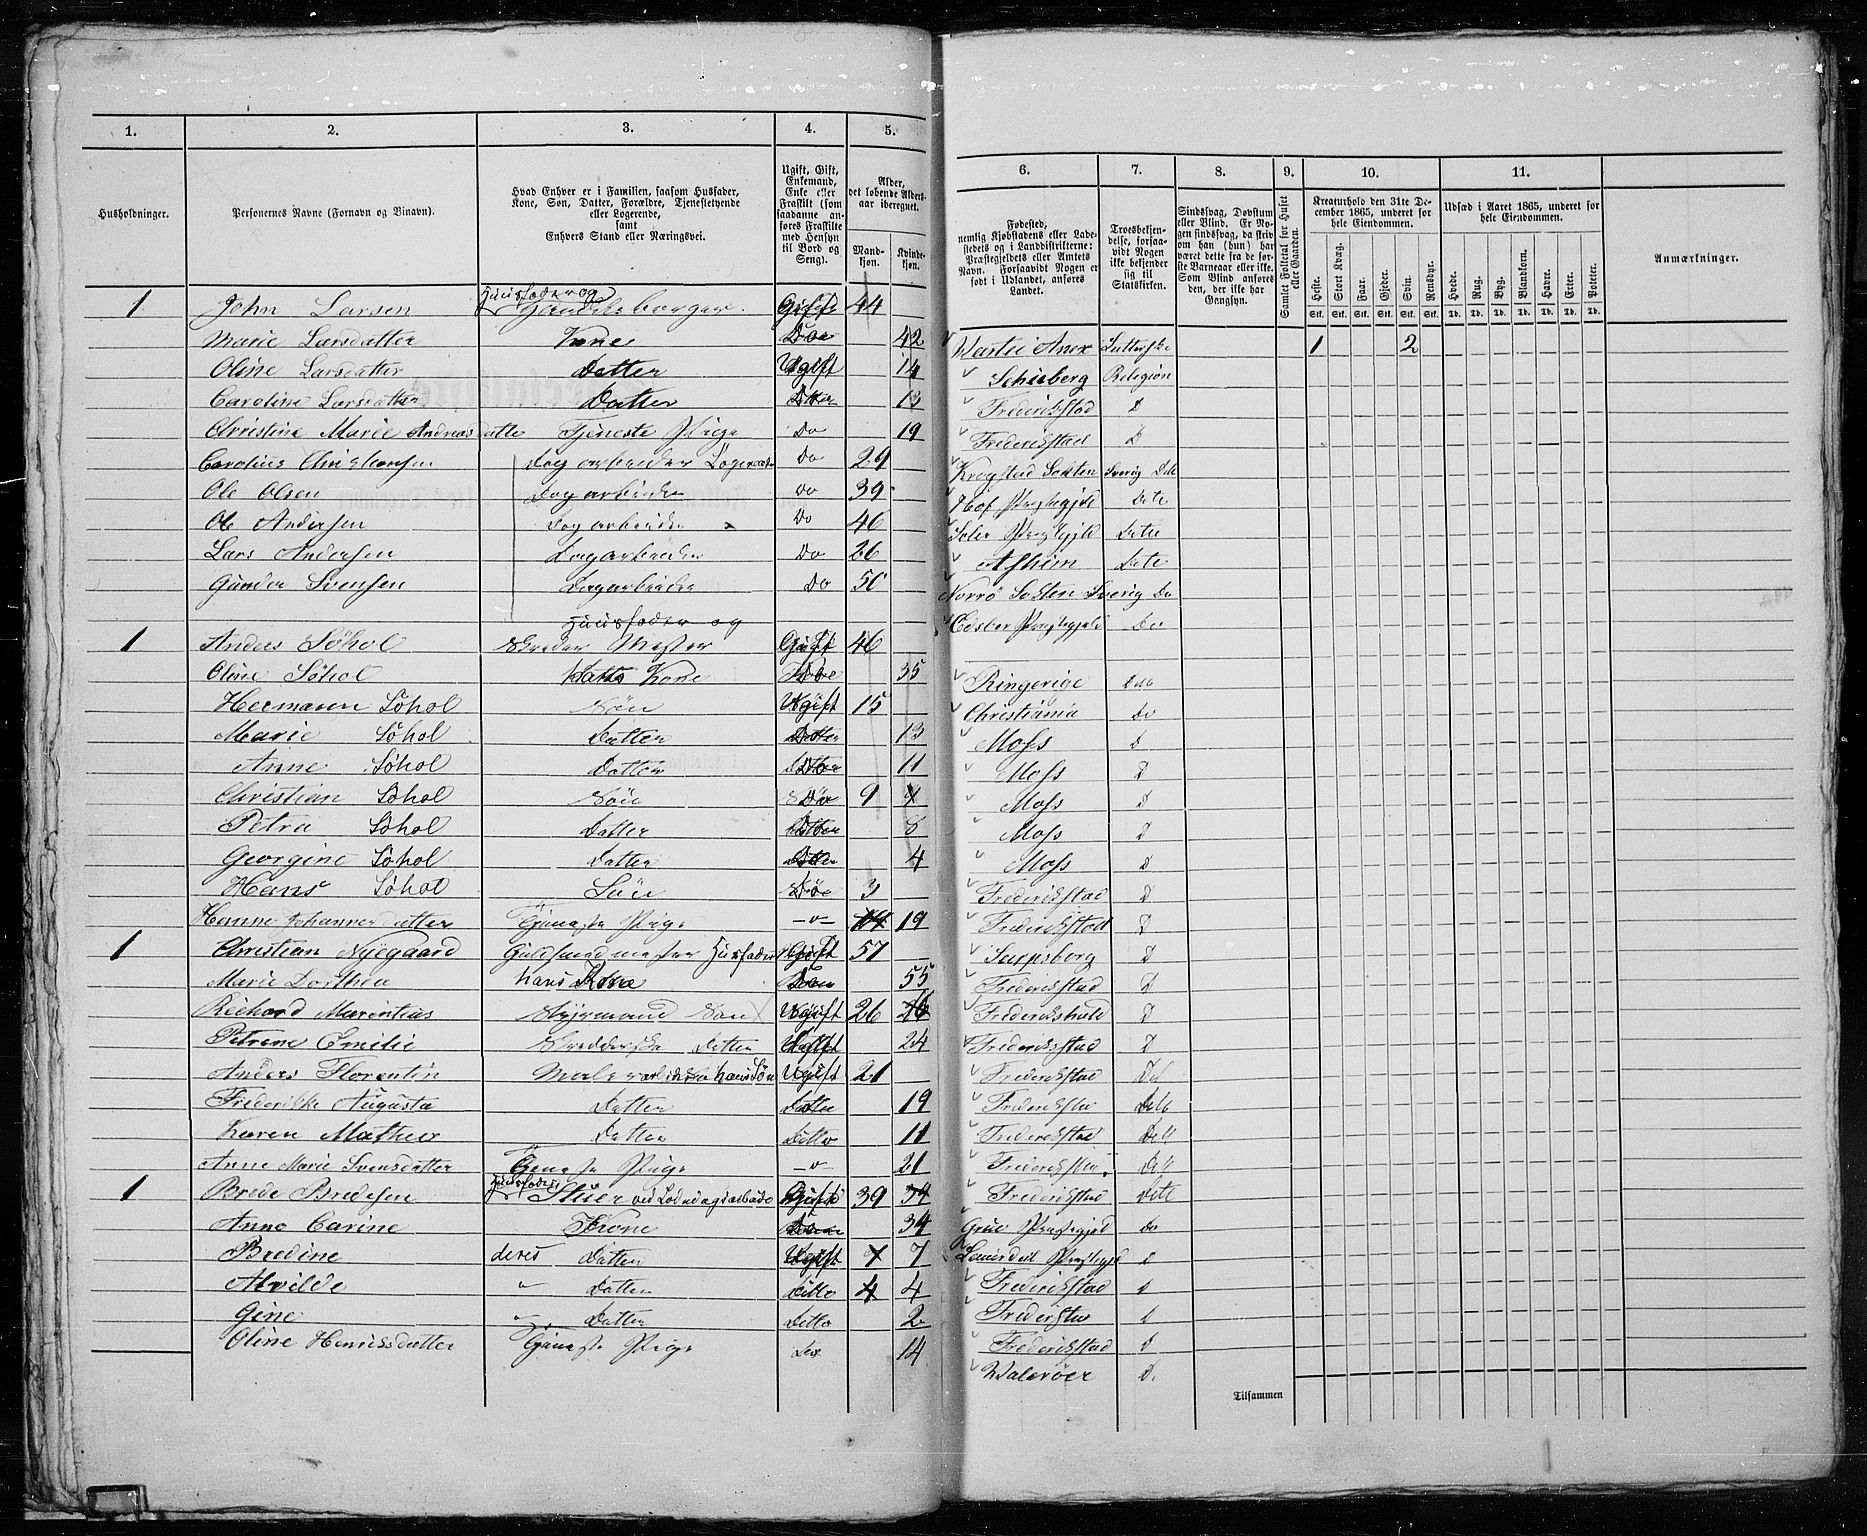 1.
2.
3.
4.
5.
Husholdninger.
Personernes Navne (Fornavn og Binavn).
Hvad Enhver er i Familien, saasom Husfader,
Kone, Søn, Datter, Forældre, Tjenestetyende
eller Logerende,
samt
Enhvers Stand eller Næringsvei.
Ugift, Gift,
Enkemand,
Enke eller
Fraskilt (som
saadanne an-
føres Fraskilte
med Hensyn
til Bord og
Seng).
Alder,
det løbende Alders-
aar iberegnet.
Mand-
kjøn.
Kvinde-
kjøn.
1 John Larsen Huusfader og Handelsborger Gift 44
Marie Larsdatter Kone Do 42
Oline Larsdatter Datter Ugift 14
Caroline Larsdatter Datter Do 13
Christine Marie Andreasdatte Tjeneste Pige Do 19
Carolius Christensen Dagarbeider Logerende Do 29
Ole Olsen Dagarbeider Do 39
Ole Andersen Dagarbeider Do 46
Lars Andersen Dagarbeider Do 26
Gunder Svensen Dagarbeider Do 50
Huusfader og
1 Anders Söhol Skreder Mester Gift 46
Oline Söhol Kone Do 35
Hermann Söhol Sön Ugift 15
Marie Söhol Datter 13
Anne Söhol Datter 11
Christian Söhol Sön 9
Petra Söhol Datter 8
Georgine Söhol Datter 4
Hans Söhol Sön 3
Hanne Johannesdatter Tjeneste Pige -"- 19
1 Christian Nyegaard Guldsmedmester Huusfader Gift 57
Marie Dorthea hans Kone 55
Richard Marentius Styrmand Sön Ugift 26
Petrine Emilie Datter Ugift 24
Anders Florentin hans Sön Ugift 21
Frederikke Augusta Datter 19
Karen Mathea Datter Ditto 11
Anne Marie Svensdatter Tjeneste Pige -"- 21
1 Brede Bredesen Huusfader Gift 39
Anne Carine Kone 34
Bredine deres Datter Ugift 7
Alvilde " Datter Ditto 4
Gine " Datter Ditto 2
Oline Henriksdatter Tjeneste Pige 14
6.
7.
8.
9.
10.
11.
Fødested,
nemlig Kjøbstadens eller Lade-
stedets og i Landdistrikterne:
Præstegjeldets eller Amtets
Navn. Forsaavidt Nogen er
født i Udlandet, anføres
Landet.
Troesbekjen-
delse, forsaa-
vidt Nogen
ikke bekjender
sig til
Statskirken.
Sindssvag, Døvstum
eller Blind. Er No-
gen sindssvag, da skriv
om han (hun) har
været dette fra de før-
ste Barneaar eller ikke.
Som Blind anføres
den, der ikke har
Gangsyn.
Samlet Folketal for Huset
eller Gaarden.
Kreaturhold den 31te De-
cember 1865, underet for
hele Eiendommen.
Heste. Stort Kvæg. Faar. Gjeder. Svin. Rensdyr.
Stk. Stk. Stk. Stk. Stk. Stk.
Udsæd i Aaret 1865, underet for
hele Eiendommen.
Hvede. Rug. Byg. Blandkorn. Havre. Erter. Poteter.
Td. Td. Td. Td. Td. Td. Td.
Anmærkninger.
Anex 1 2
Schieberg Religion
Frederikstad D
Frederikstad D
Krogstad Sokten Sverig
Hof Præstegjeld
Soler Præstegjeld
Askim
Sokten Sverig Do
Præstegjeld Do
Ringerige
Christiania Do
Moss D
Moss D
Moss D
Moss D
Moss D
Frederikstad D
Frederikstad D
Sarpsborg D
Frederikstad D
Frederikshald D
Frederiksstad D
Frederikstad
Frederiksta
Frederikstad
Frederiksta
Frederikstad
Grue Præstegjeld Do
Præstegjeld
Frederikstad
Frederiksta
Frederikstad D
Walerøer D.
Tilsammen